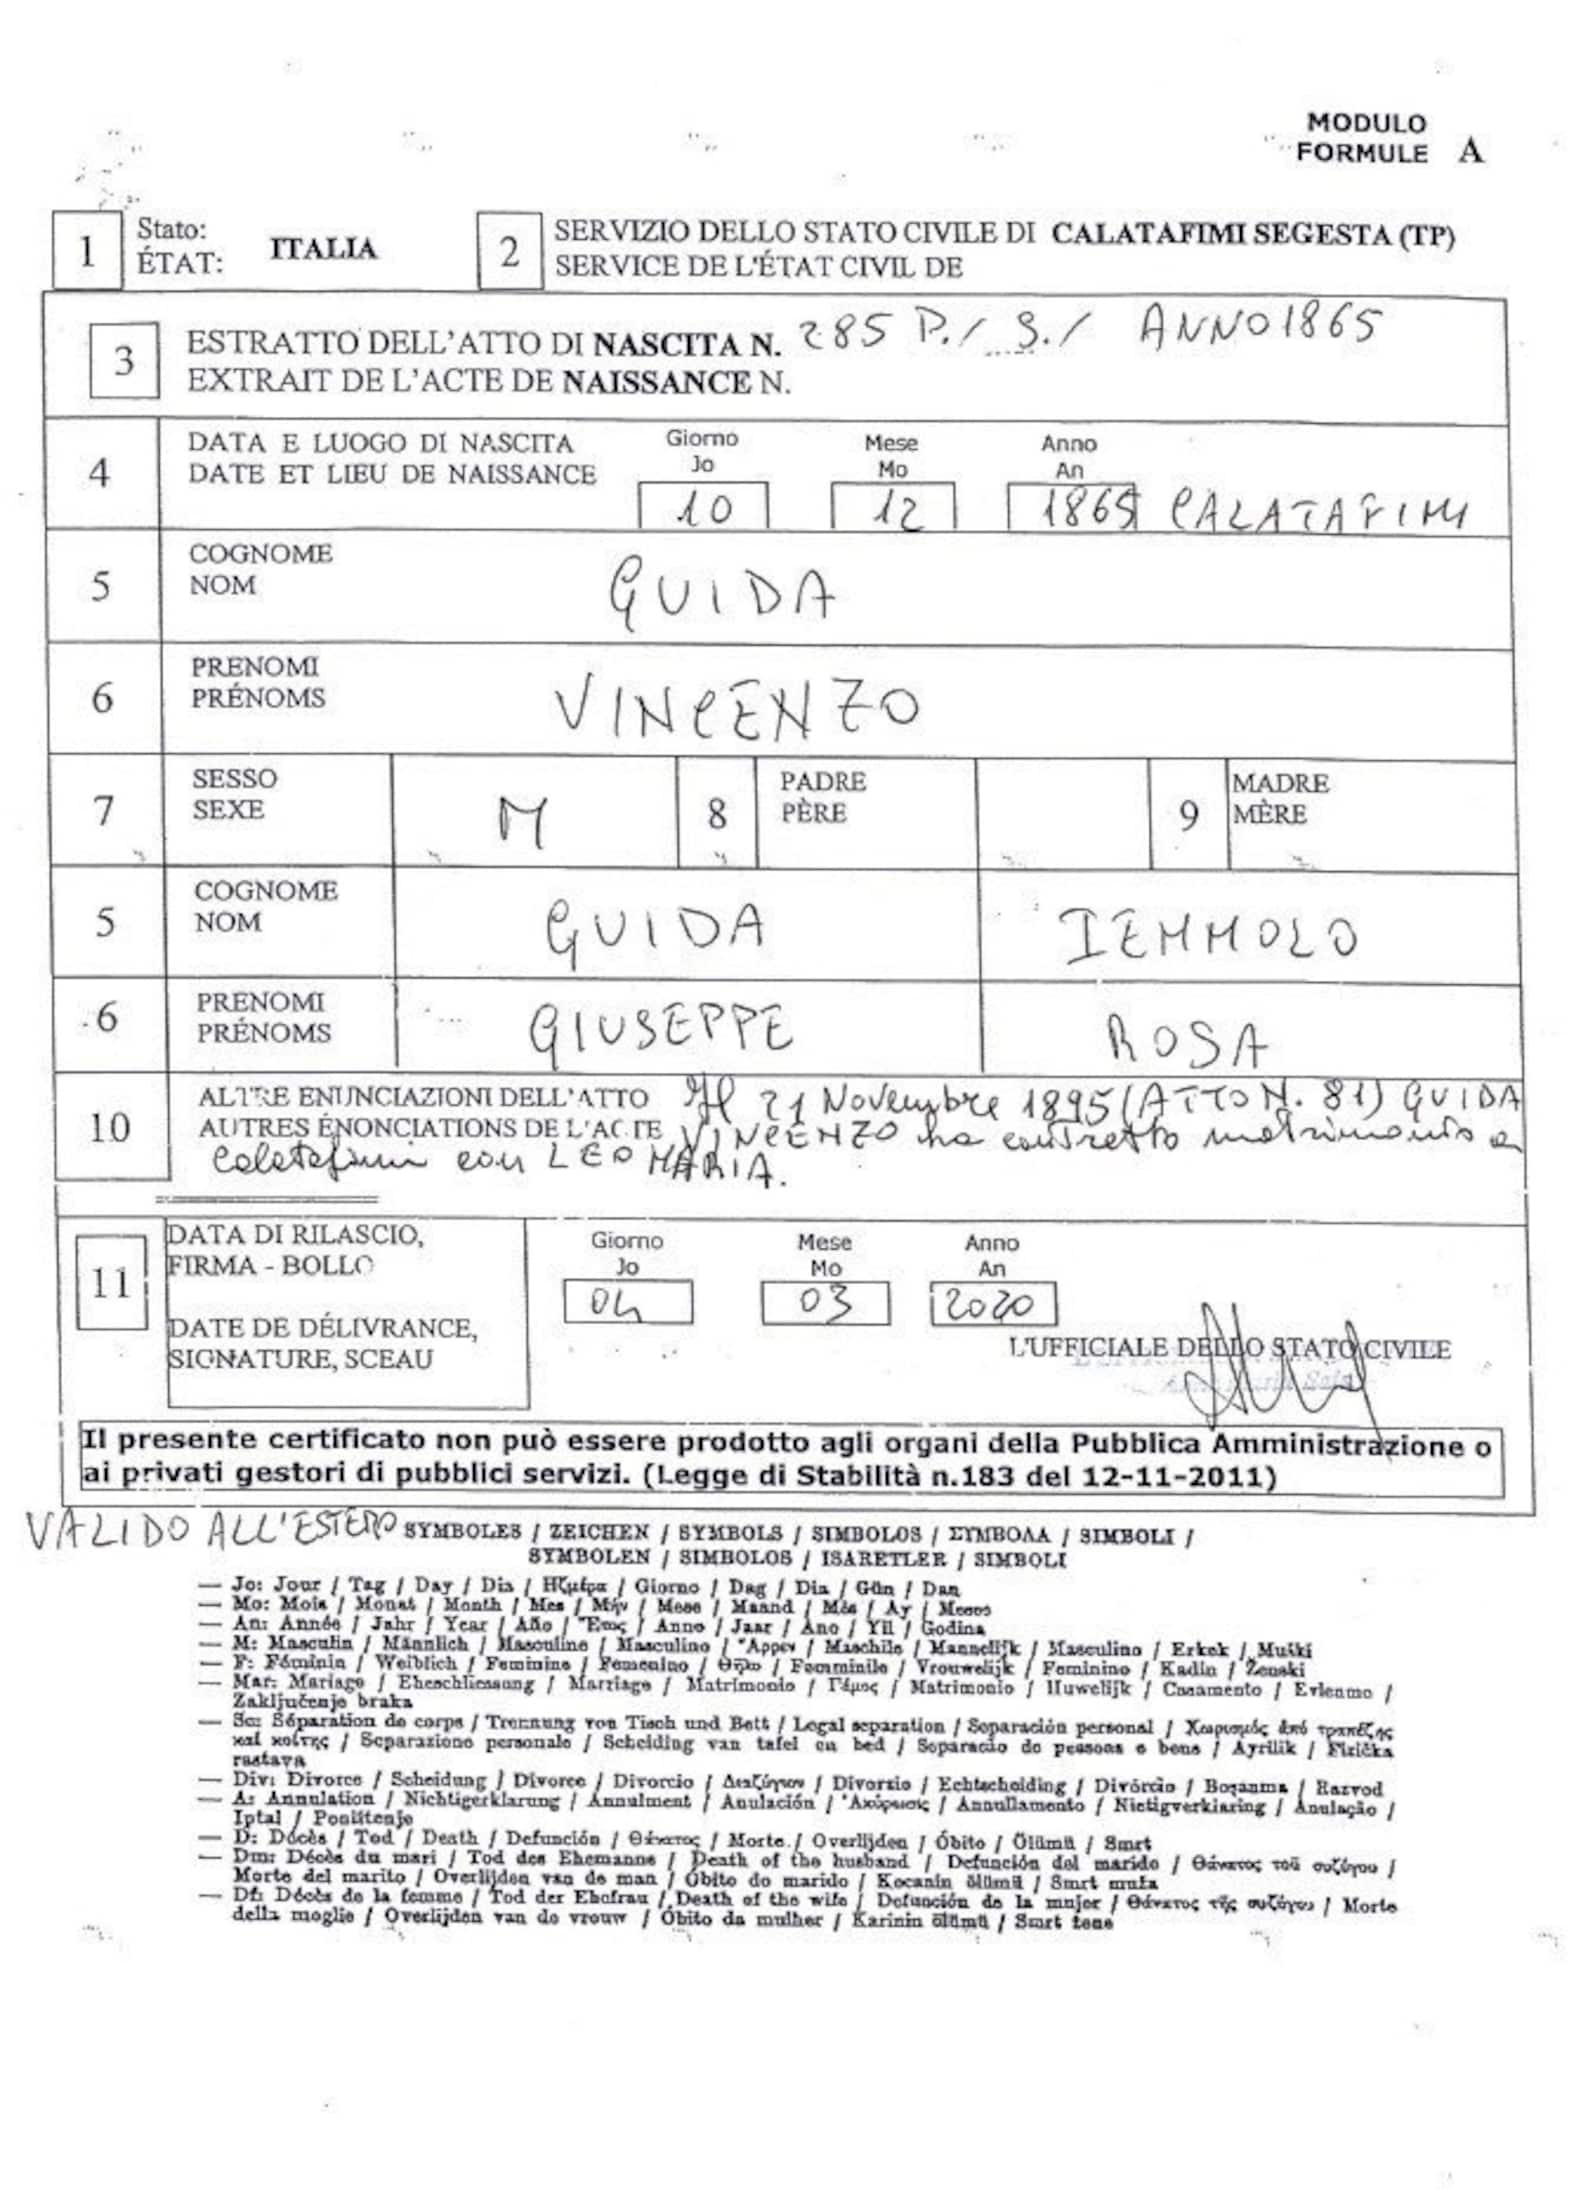 MODULO
FORMULE A
1 Stato: ITALIA 2 SERVIZIO DELLO STATO CIVILE DI CALATAFIMI SEGESTA (TP)
ÉTAT: SERVICE DE L'ÉTAT CIVIL DE
3 ESTRATTO DELL'ATTO DI NASCITA N. 285 P./ S./ ANNO 1865
EXTRAIT DE L'ACTE DE NAISSANCE N.
4 DATA E LUOGO DI NASCITA Giorno Mese Anno
DATE ET LIEU DE NAISSANCE Jo Mo An
10 12 1865 CALATAFIMI
5 COGNOME
NOM
GUIDA
6 PRENOMI
PRÉNOMS
VINCENZO
7 SESSO M 8 PADRE 9 MADRE
SEXE PÈRE MÈRE
5 COGNOME
NOM
GUIDA IEMMOLO
6 PRENOMI
PRÉNOMS
GIUSEPPE ROSA
10 ALTRE ENUNCIAZIONI DELL'ATTO Il 21 Novembre 1895 (ATTO N. 81) GUIDA
AUTRES ÉNONCIATIONS DE L'ACTE VINCENZO ha contratto matrimonio a
Calatafimi con LEO MARIA.
11 DATA DI RILASCIO,
FIRMA - BOLLO
DATE DE DÉLIVRANCE,
SIGNATURE, SCEAU
Giorno Mese Anno
Jo Mo An
04 03 2020
L'UFFICIALE DELLO STATO CIVILE
Il presente certificato non può essere prodotto agli organi della Pubblica Amministrazione o
ai privati gestori di pubblici servizi. (Legge di Stabilità n.183 del 12-11-2011)
VALIDO ALL'ESTERO SYMBOLES / ZEICHEN / SYMBOLS / SIMBOLOS / ΣΥΜΒΟΛΑ / SIMBOLI /
SYMBOLEN / SIMBOLOS / ISARETLER / SIMBOLI
— Jo: Jour / Tag / Day / Dia / Ημέρα / Giorno / Dag / Dia / Gün / Dan
— Mo: Mois / Monat / Month / Mes / Μήν / Mese / Maand / Mês / Ay / Mesec
— An: Année / Jahr / Year / Año / Έτος / Anno / Jaar / Ano / Yil / Godina
— M: Masculin / Männlich / Masculine / Masculino / Άρρεν / Maschile / Mannelijk / Masculino / Erkek / Muški
— F: Féminin / Weiblich / Feminine / Femenino / Θήλυ / Femminile / Vrouwelijk / Feminino / Kadin / Ženski
— Mar: Mariage / Eheschliessung / Marriage / Matrimonio / Γάμος / Matrimonio / Huwelijk / Casamento / Evlenme /
Zaključenje braka
— Sc: Séparation de corps / Trennung von Tisch und Bett / Legal separation / Separación personal / Χωρισμός από τραπέζης
καί κοίτης / Separazione personale / Scheiding van tafel en bed / Separação de pessoas e bens / Ayrilik / Fizička
rastava
— Div: Divorce / Scheidung / Divorce / Divorcio / Διαζύγιον / Divorzio / Echtscheiding / Divórcio / Boşanma / Razvod
— A: Annulation / Nichtigerklarung / Annulment / Anulación / Ακύρωσις / Annullamento / Nietigverklaring / Anulação /
Iptal / Poništenje
— D: Décès / Tod / Death / Defunción / Θάνατος / Morte / Overlijden / Óbito / Ölümü / Smrt
— Dm: Décès du mari / Tod des Ehemanns / Death of the husband / Defunción del marido / Θάνατος τοῦ συζύγου /
Morte del marito / Overlijden van de man / Óbito do marido / Kocanin ölümü / Smrt muža
— Df: Décès de la femme / Tod der Ehefrau / Death of the wife / Defunción de la mujer / Θάνατος τῆς συζύγου / Morte
della moglie / Overlijden van de vrouw / Óbito da mulher / Karinin ölümü / Smrt žene